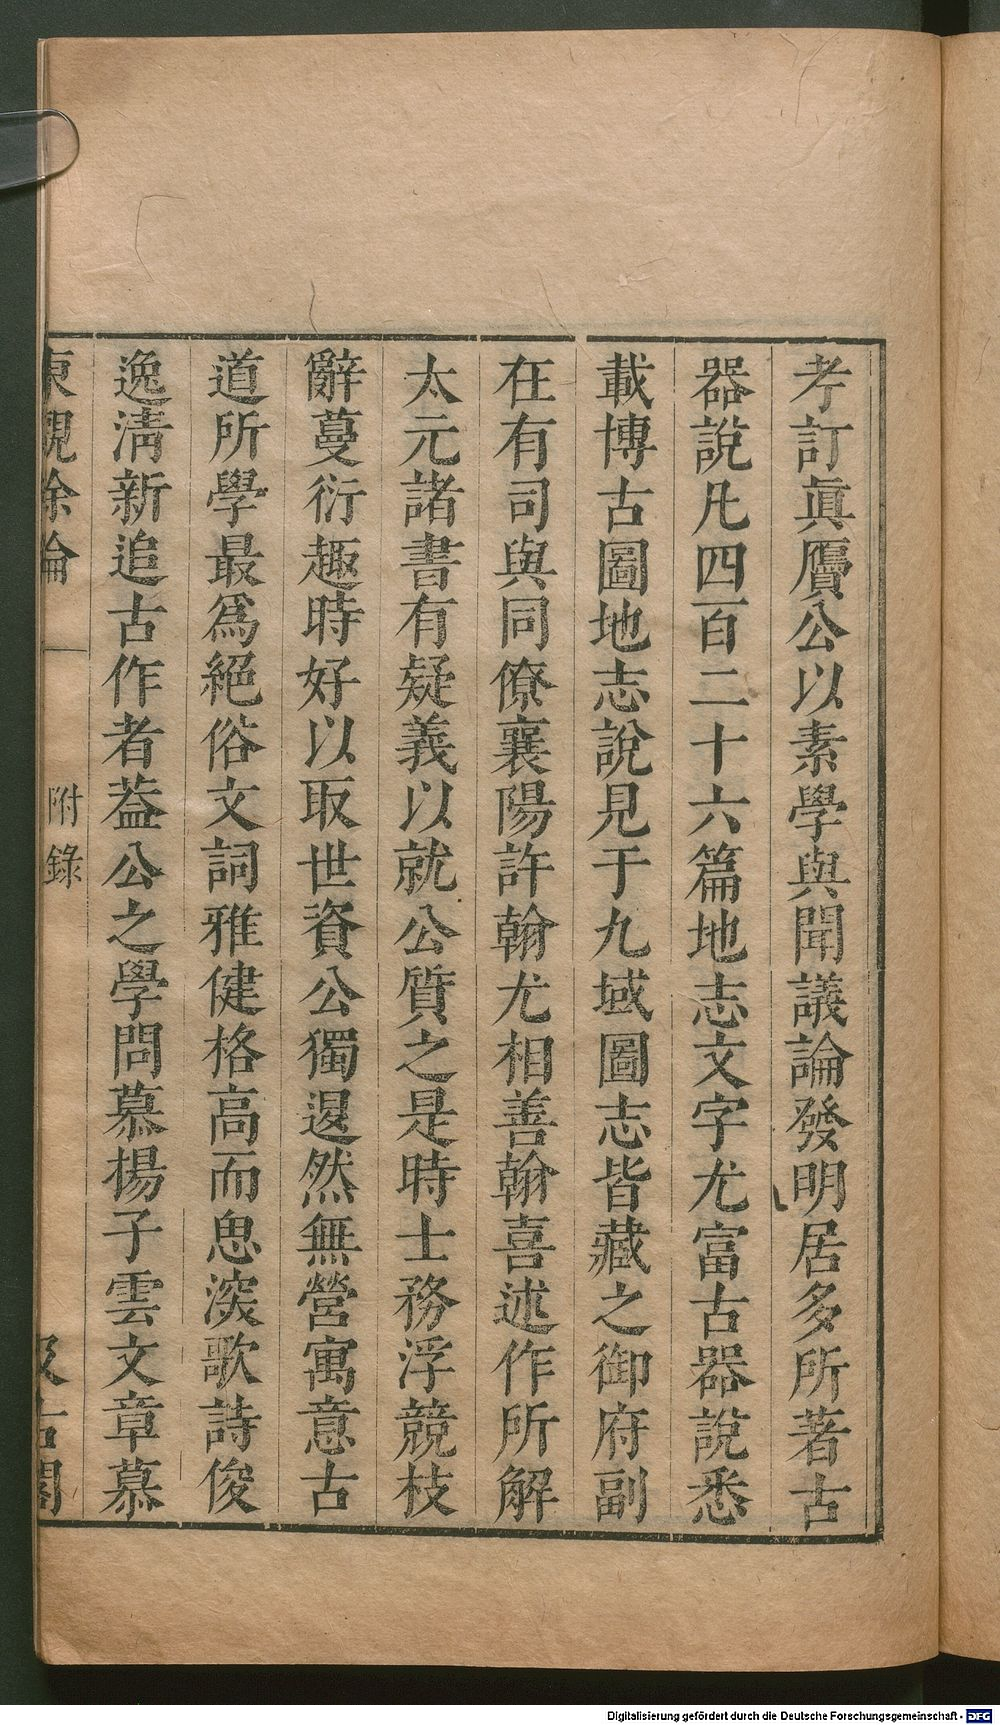 考訂眞贗公以素學與聞議論發明居多所著古
器說凡四百二十六篇地志文字尤富古器說悉
載博古圖地志說見于九域圖志皆藏之御府副
在有司與同僚襄陽許翰尤相善翰喜述作所解
太元諸書有疑義以就公質之是時士務浮競枝
辭蔓衍趣時好以取世資公獨邈然無營寓意古
道所學最爲絕俗文詞雅健格高而思深歌詩俊
逸淸新追古作者葢公之學問慕揚子雲文章慕
東觀餘論 附錄 汲古閣
Digitalisierung gefördert durch die Deutsche Forschungsgemeinschaft - DFG